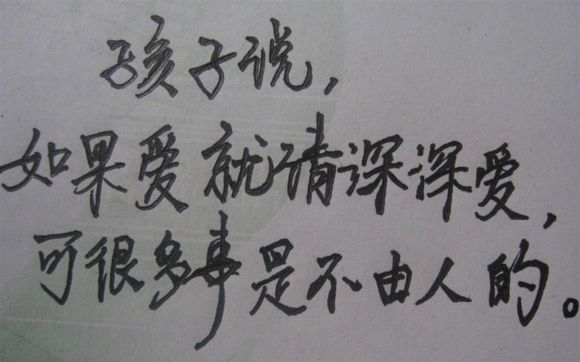 孩子说，
如果爱就请深深爱，
可很多事是不由人的。